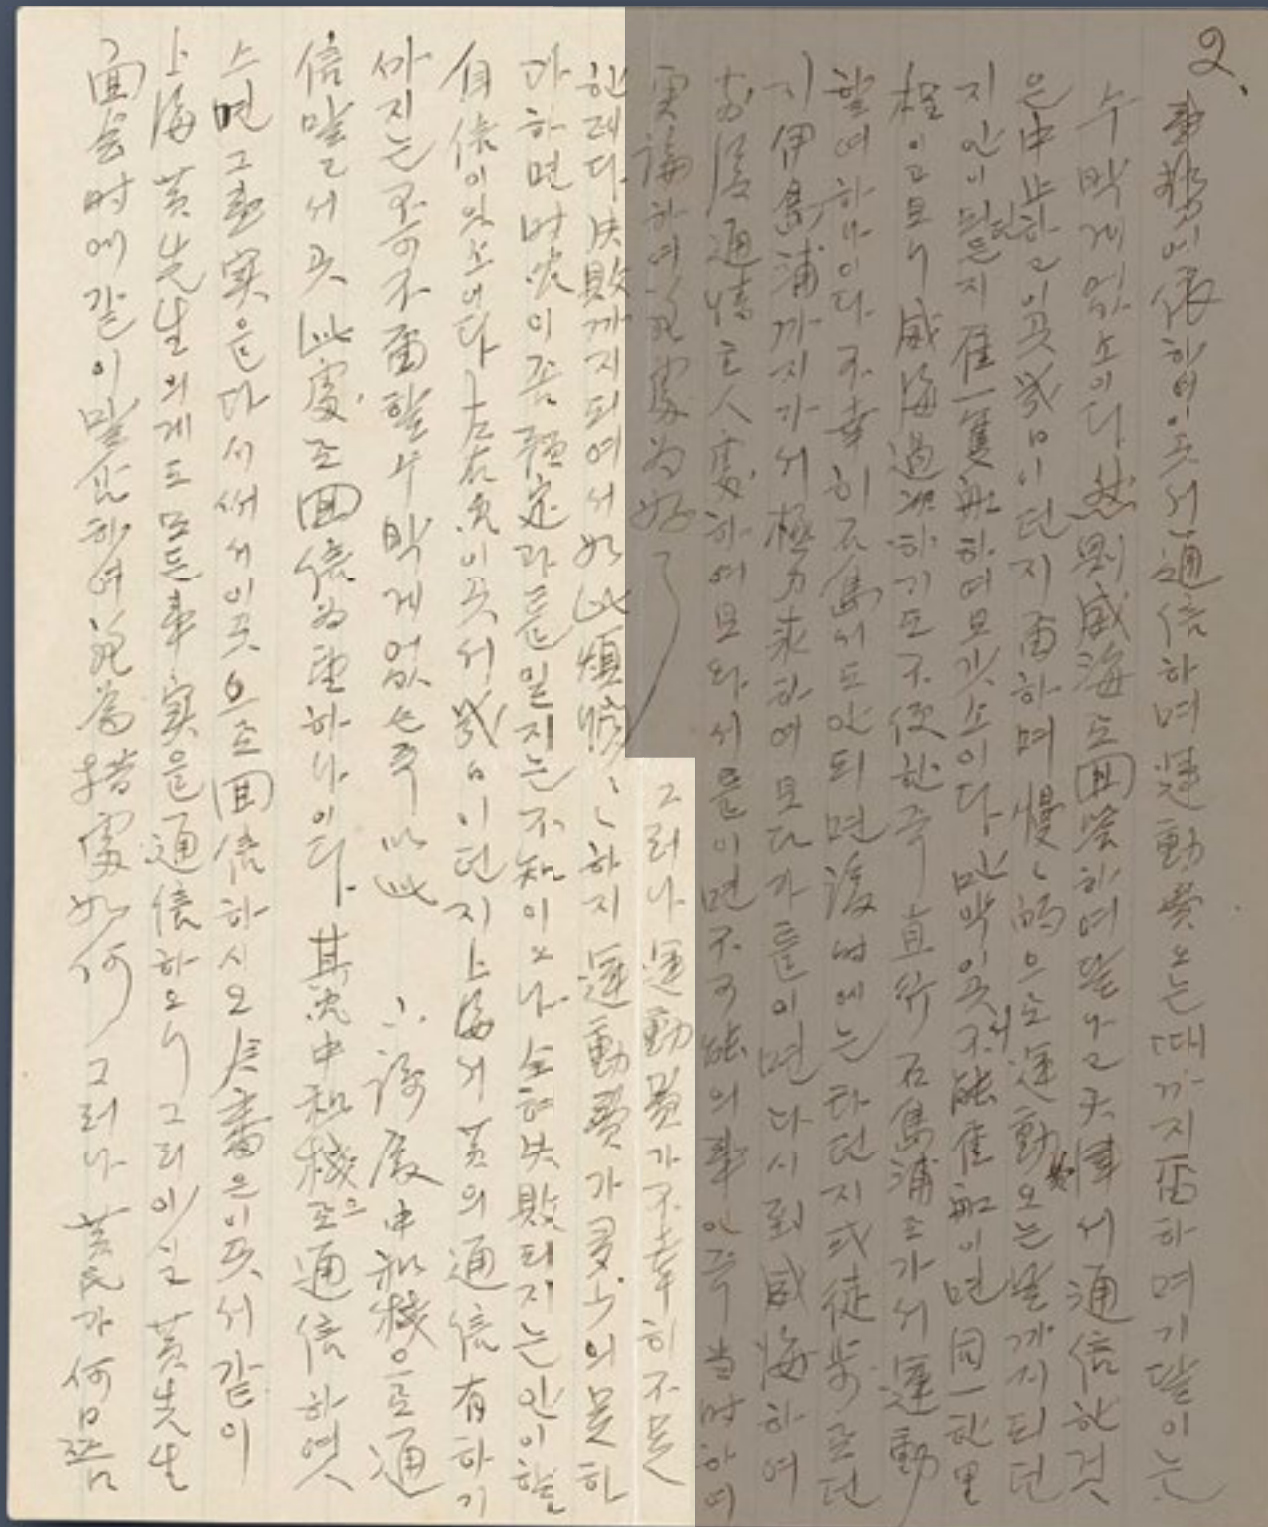 2.
事勢에 依하여 이곳서 通信하며 運動費 오는 때까지 留하며 기달이는
수박게 업소이다. 然則 威海로 回路하여 달나고 天津서 通信한 것
은 中止하고 이곳 몃日이던지 留하며 慢々的으로 運動費 오는 날까지 되던
지 안이 되던지 雇一隻船하여 보갓소이다. 만약 이곳서 不能雇船이면 同一한 里
程이고 보니 威海過去하기도 不便한즉 直行 石島浦로 가서 運動
할여 하나이다. 不幸히 石島서도 안 되면 後日에는 타던지 或 徒步로던
지 伊島浦까지 가서 極力 求하여 보다가 틀이면 다시 到威海하여
前後 通情 主人處하여 보와서 틀이면 不可能의 事인즉 當時하여
更論하여 措處爲好
그러나 運動費가 不幸히 不足
한데다. 失敗까지 되여서 如此 煩惱々하지 運動費가 多少의 足하
과하면 時次이 좀 預定과 틀일지는 不知이오나 全혀 失敗되지는 안이할
自信이 잇소이다. 左右次 이곳서 몃日이던지 上海서 黃의 通信 有하기
까지는 不可不 留할 수박게 업슨즉 以此 諒度 中和棧으로 通
信 말고서 곳 此處로 回信을 望하나이다. 其次 中和棧으로 通信하엿
스면 그 事實을 다시 써서 이곳으로 回信하시오 此番은 이곳서 같이
上海 黃先生의게도 모든 事實을 通信하오니 그리 아시고 黃先生
面會時에 같이 말삼하여 措處如何 그러나 黃氏가 何日